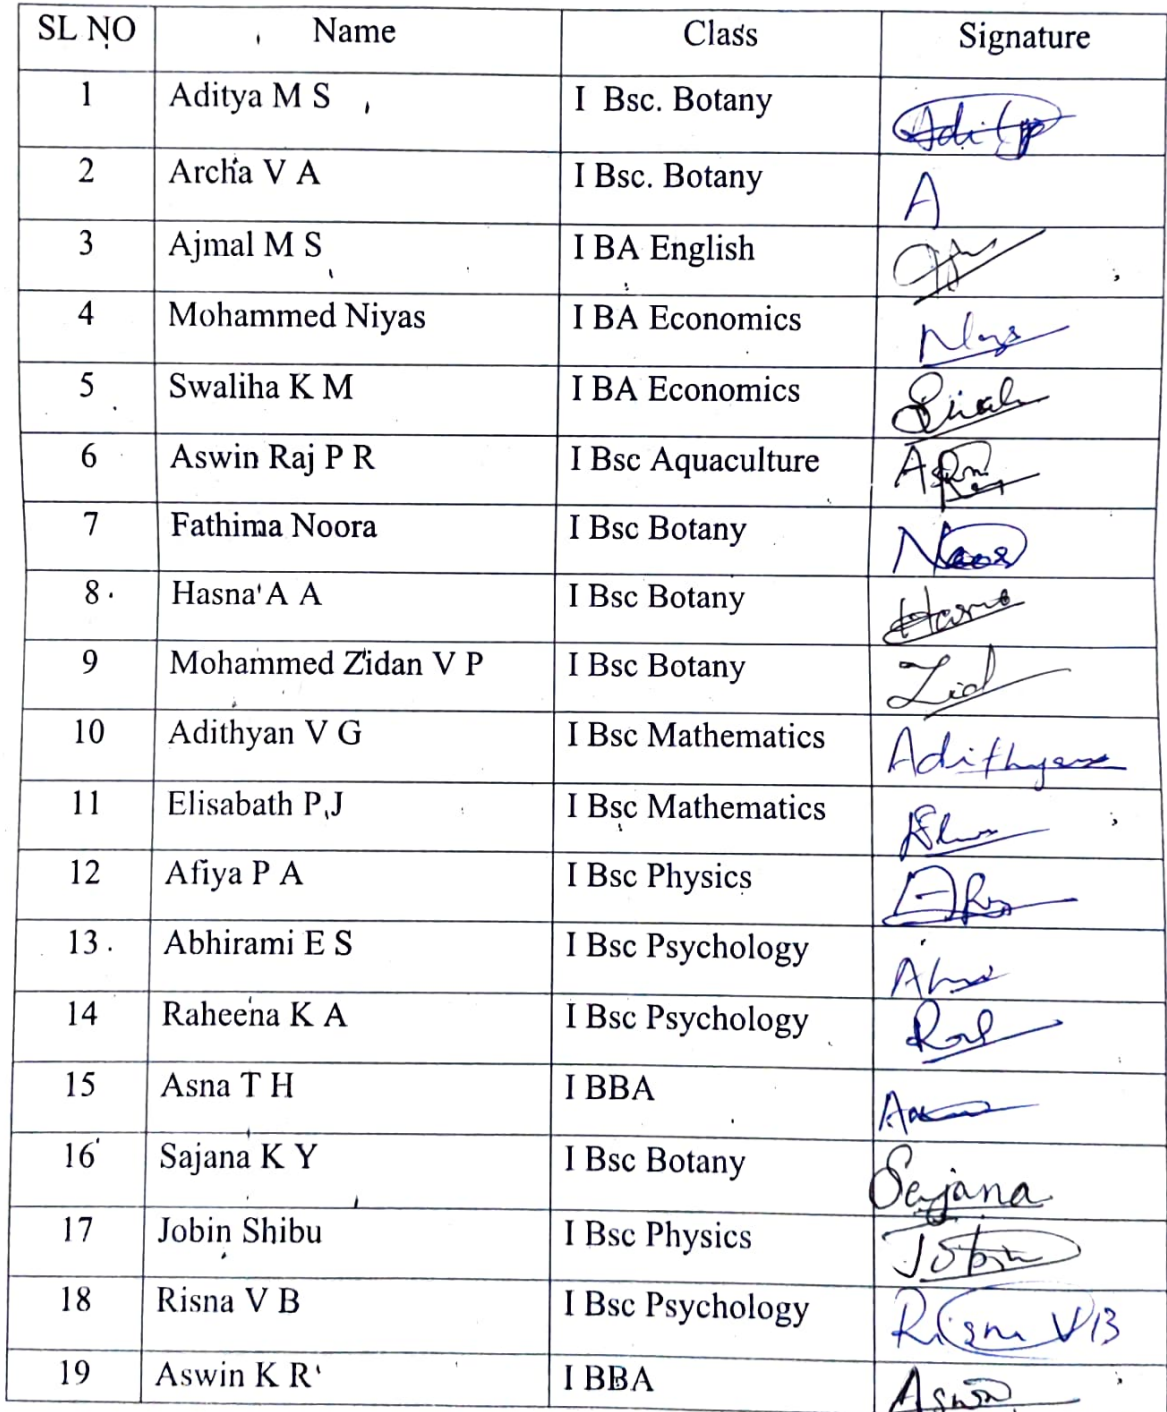 SL NO Name Class Signature
1 Aditya M S I Bsc. Botany
2 Archa V A I Bsc. Botany A
3 Ajmal M S I BA English
4 Mohammed Niyas I BA Economics
5 Swaliha K M I BA Economics
6 Aswin Raj P R I Bsc Aquaculture
7 Fathima Noora I Bsc Botany
8 Hasna A A I Bsc Botany
9 Mohammed Zidan V P I Bsc Botany
10 Adithyan V G I Bsc Mathematics Adithyan
11 Elisabath P J I Bsc Mathematics
12 Afiya P A I Bsc Physics
13 Abhirami E S I Bsc Psychology
14 Raheena K A I Bsc Psychology
15 Asna T H I BBA
16 Sajana K Y I Bsc Botany Sajana
17 Jobin Shibu I Bsc Physics Jobin
18 Risna V B I Bsc Psychology Risna VB
19 Aswin K R I BBA Aswin